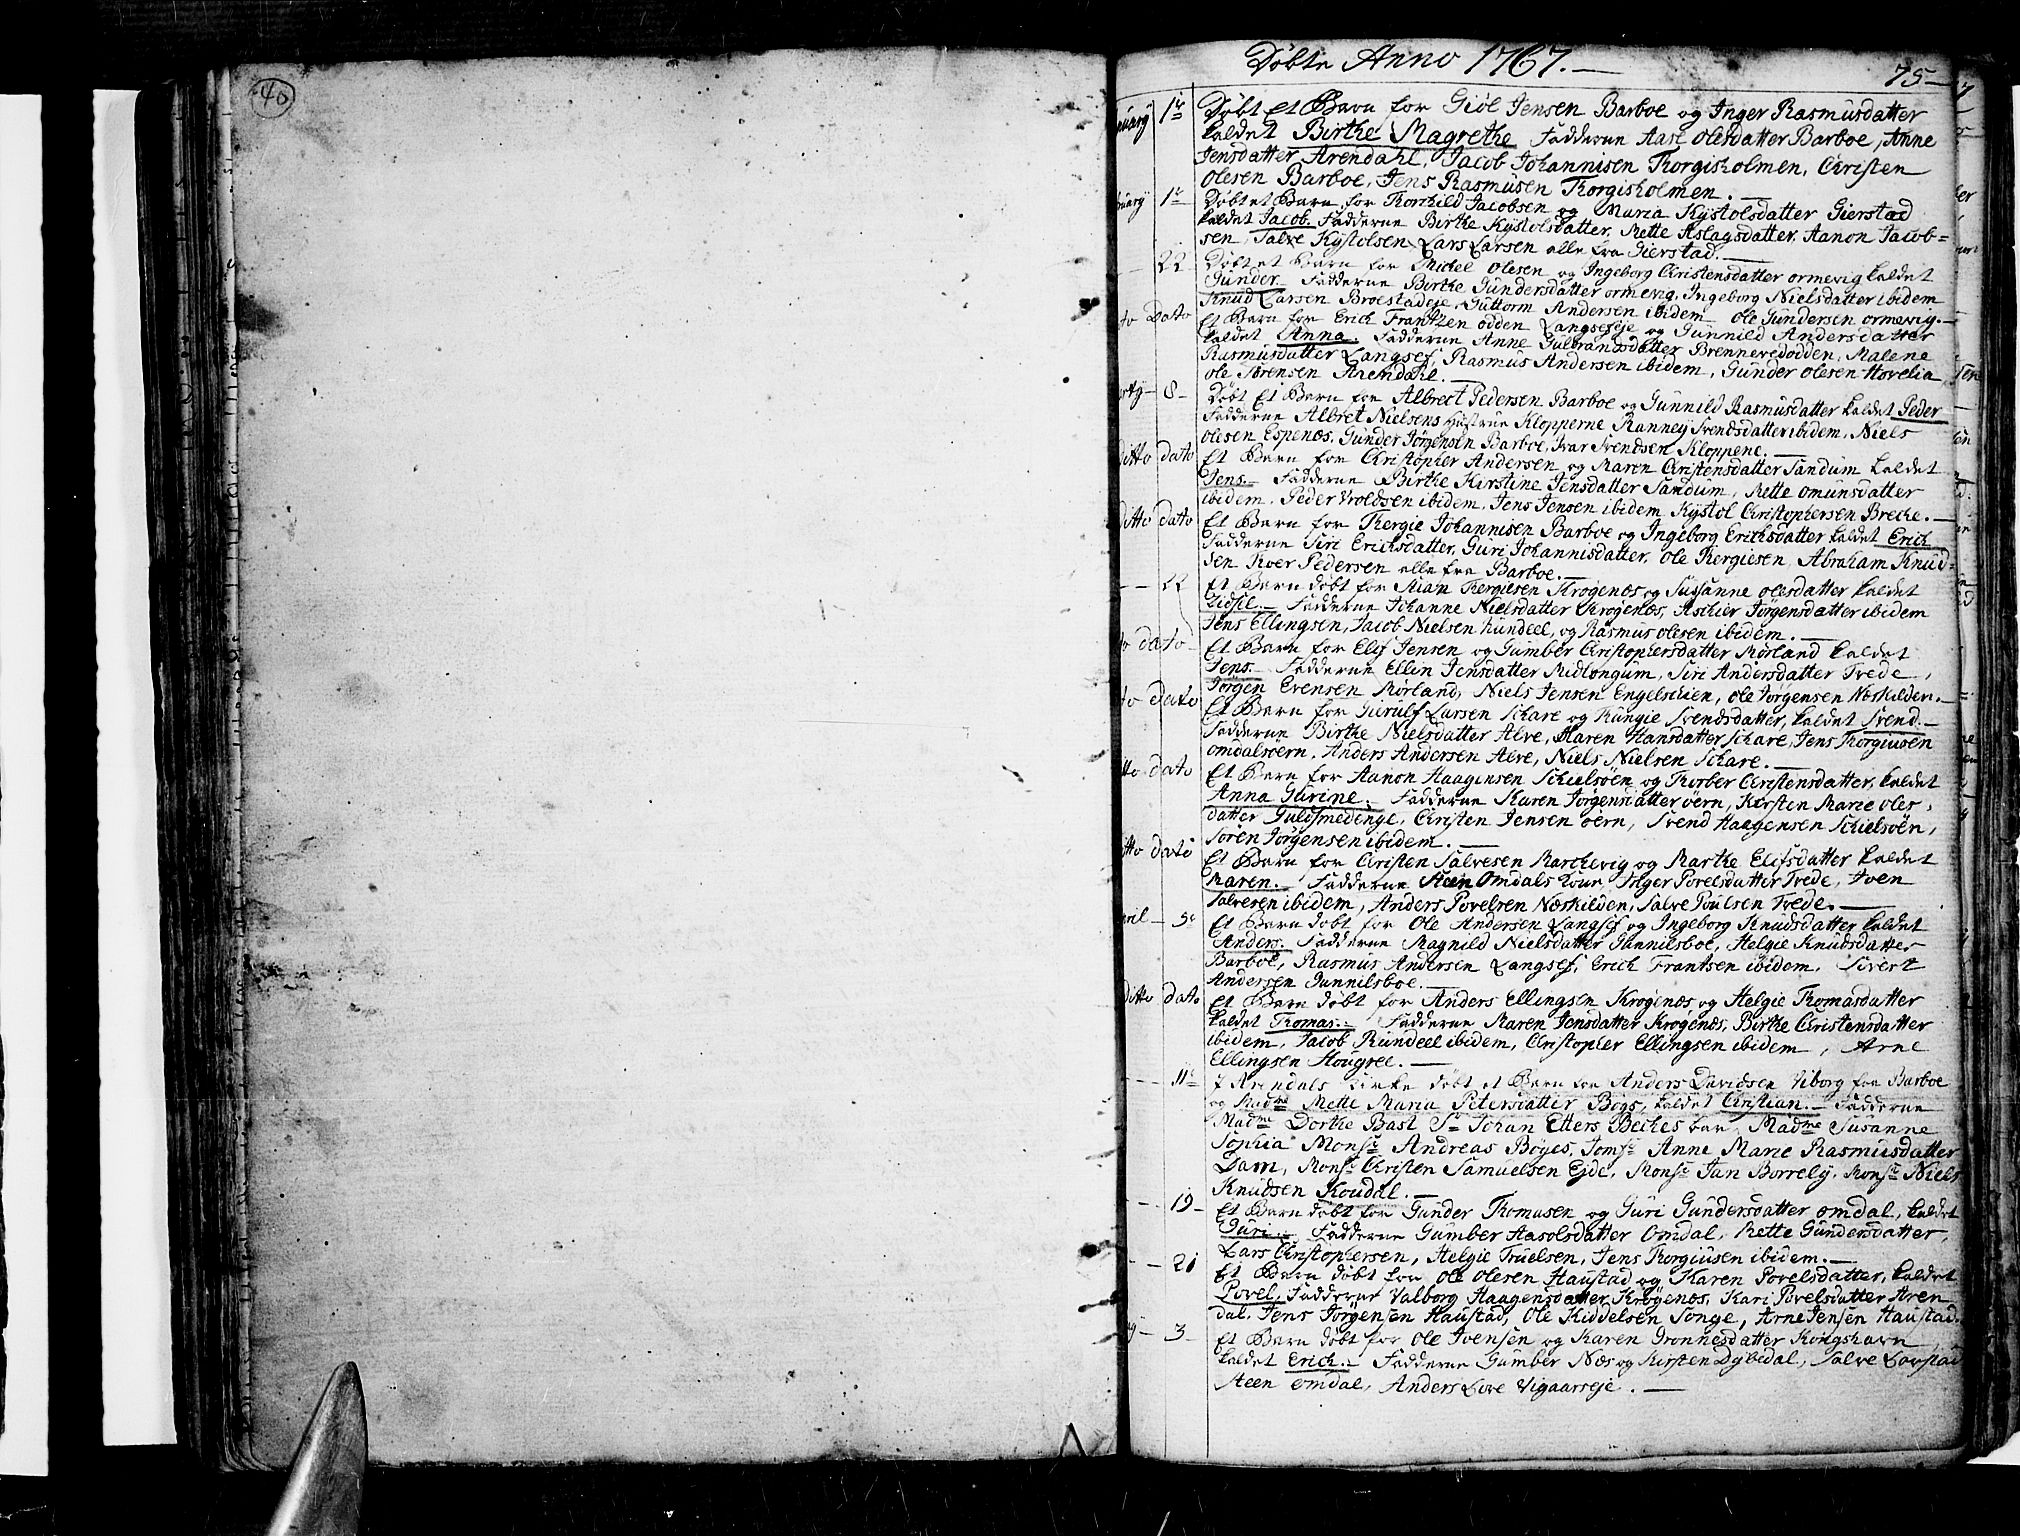 40
Døbte Anno 1767.—
75
1te Døbt Et Barn for Giøl Jensen Barboe og Inger Rasmusdatter
kaldet Birthe Magrethe Fadderne Aase Olesdatter Barboe, Anne
Jensdatter Arendahl, Jacob Johannisen Thorgisholmen, Christen
Olesen Barboe, Jens Rasmusen Thorgisholmen.—
1te Døbt et Barn for Thorchild Jacobsen og Maria Kystolsdatter Gierstad
kaldet Jacob. Fadderne Birthe Kystolsdatter, Mette Aslagsdatter, Aanon Jacob=
sen, Salve Kystolsen, Lars Larsen alle fra Gierstad.—
22 Døbt et Barn for Michel Olesen og Ingeborg Christensdatter Ormevig kaldet
Gunder. Fadderne Birthe Gundersdatter Ormevig, Ingeborg Nielsdatter ibidem
Knud Larsen Broestadeje, Guttorm Andersen ibidem Ole Gundersen Ormevig.—
Dato Et Barn for Erich Frantzen Odden Langsefeje og Gunnild Andersdatter
kaldet Anna. Fadderne Anne Gulbrandsdatter Brennevedodden, Malene
Rasmusdatter Langsef, Rasmus Andersen ibidem, Gunder Olesen
Ole Sørensen Arendahl.—
8 Døbt Et Barn for Albrect Pedersen Barboe og Gunnild Rasmusdatter kaldet Peder
Fadderne Albret Nielsens Hustrue Klopperne Ranney Svendsdatter ibidem, Niels
Olesen Espenæs, Gunder Jørgensen Barboe, Ivar Svendsen Kloppene.—
ditto dato Et Barn for Christopher Andersen og Maren Christensdatter Sandum kaldet
Jens.— Fadderne Birthe Kirstine Jensdatter Sandum, Mette Omunsdatter
ibidem, Peder Vroldsen ibidem, Jens Jensen ibidem Kystol Christophersen Breche.—
ditto dato Et Barn for Thergie Johannisen Barboe og Ingeborg Erichsdatter kaldet Erich
Fadderne Siri Erichsdatter, Guri Johannisdatter, Ole Thergiesen, Abraham Knud=
sen Roer Pedersen alle fra Barboe.—
22 Et Barn døbt for Stian Thergiesen Krogenæs og Susanne Olesdatter kaldet
Zidsel.— Fadderne Johanne Nielsdatter Krogenæs, Aschier Jørgensdatter ibidem
Jens Ellingsen, Jacob Nielsen Rundeel, og Rasmus Olesen ibidem.—
dato Et Barn for Elif Jensen og Gumber Christophersdatter Mørland kaldet
Jens.— Fadderne Ellin Jensdatter Midlongum, Siri Andersdatter Trede,
Jørgen Evensen Mørland, Niels Jensen Engelschien, Ole Jørgensen Neskilden.—
dato Et Barn for Gierulf Larsen Schare og Thungie Svendsdatter, kaldet Svend.—
Fadderne Birthe Nielsdatter Alve, Maren Hansdatter Schare, Jens Thorgiusen
Omdalsøern, Anders Andersen Alve, Niels Nielsen Schare.—
dato Et Barn for Aanon Haagensen Schielsøen og Thorber Christensdatter, kaldet
Anna Gurine.— Fadderne Karen Jørgensdatter Øern, Kersten Marie Oles=
datter Guldsmedenge, Christen Jensen Øern, Svend Haagensen Schielsøen,
Soren Jørgensen ibidem.—
dato Et Barn for Christen Salvesen Marchevig og Marthe Elifsdatter kaldet
Maren.— Fadderne Steen Omdals Koune Inger Povelsdatter Trede, Iven
Salvesen ibidem, Anders Povelsen Næskilden, Salve Poulsen Trede.—
5te Et Barn døbt for Ole Andersen Langsef og Ingeborg Knudsdatter kaldet
Anders. Fadderne Magnild Nielsdatter Gunnilsboe, Helgie Knudsdatter
Barboe, Rasmus Andersen Langsef, Erich Frantsen ibidem, Sivert
Andersen Gunnilsboe.—
ditto dato Et Barn døbt for Anders Ellingsen Krogenæs og Helgie Thomasdatter
kaldet Thomas.— Fadderne Maren Jensdatter Krogenæs, Birthe Christensdatter
ibidem, Jacob Rundeel ibidem, Christopher Ellingsen ibidem, Arne
Ellingsen Hougree.—
11te I Arendals Kirke døbt et Barn for Anders Davidsen Viborg fra Barboe
og Madme Mette Maria Petersdatter Bøgs, kaldet Christian.— Fadderne
Madme Dorthe Bast Sr Johan Etters Beches bar, Madme Susanne
Sophia Monsr Andreas Bøyes, Jomfr Anne Marie Rasmusdatter
Dam, Monsr Christen Samuelsen Ejde, Monsr Jan Borrely, Monsr Niels
Knudsen Koudal.—
19 Et Barn døbt for Gunder Thomasen og Guri Gundersdatter Omdal, kaldet
Guri.— Fadderne Gumber Aasolsdatter Omdal, Mette Gundersdatter,
Lars Christophersen, Helgie Truelsen, Jens Thorgiusen ibidem.—
21 Et Barn døbt for Ole Olesen Haustad og Karen Povelsdatter, kaldet
Povel, Fadderne Valborg Haagensdatter Krøgenæs, Kari Povelsdatter Aren
dal, Jens Jørgensen Haustad, Ole Kiddelsen Songe, Arne Jensen Haustad.
3 Et Barn døbt for Ole Ivensen og Karen Gronnesdatter Kongshavn
kaldet Erich.— Fadderne Gumber Næs og Kirsten Dybedal, Salve Lovstad
Steen Omdal, Anders Love Vigaarseje.—